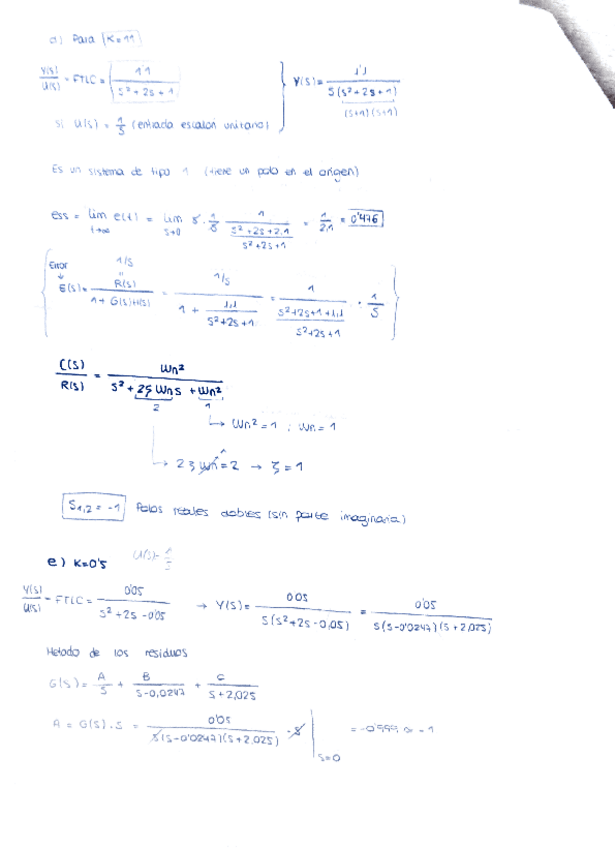 d) Para K=11
Y(s)/U(s) = FTLC = 1'1 / (s²+2s+1) } Y(s) = 1,1 / (s(s²+2s+1))
(s+1)(s+1)
Si U(s) = 1/s (entrada escalón unitario)
Es un sistema de tipo 1 (tiene un polo en el origen)
ess = lim t→∞ e(t) = lim s→0 s · 1/s · 1 / ((s²+2s+2,1)/(s²+2s+1)) = 1/2,1 = 0'476
Error ↓ E(s) = R(s) / (1+G(s)H(s)) = 1/s / (1 + 1,1/(s²+2s+1)) = 1 / ((s²+2s+1+1,1)/(s²+2s+1)) · 1/s
1/s
C(s)/R(s) = Wn² / (s² + 2ζWn s + Wn²)
2 1
↳ Wn² = 1 ; Wn = 1
↳ 2ζWn = 2 → ζ = 1
S1,2 = -1 Polos reales dobles (sin parte imaginaria)
e) K=0'5 U(s)= 1/s
Y(s)/U(s) = FTLC = 0'05 / (s²+2s-0'05) → Y(s) = 0'05 / (s(s²+2s-0,05)) = 0'05 / (s(s-0'0247)(s+2,025))
Metodo de los residuos
G(s) = A/s + B/(s-0,0247) + C/(s+2,025)
A = G(s)·s = 0'05 / (s(s-0'0247)(s+2,025)) · s | s=0 = -0'999 ≈ -1